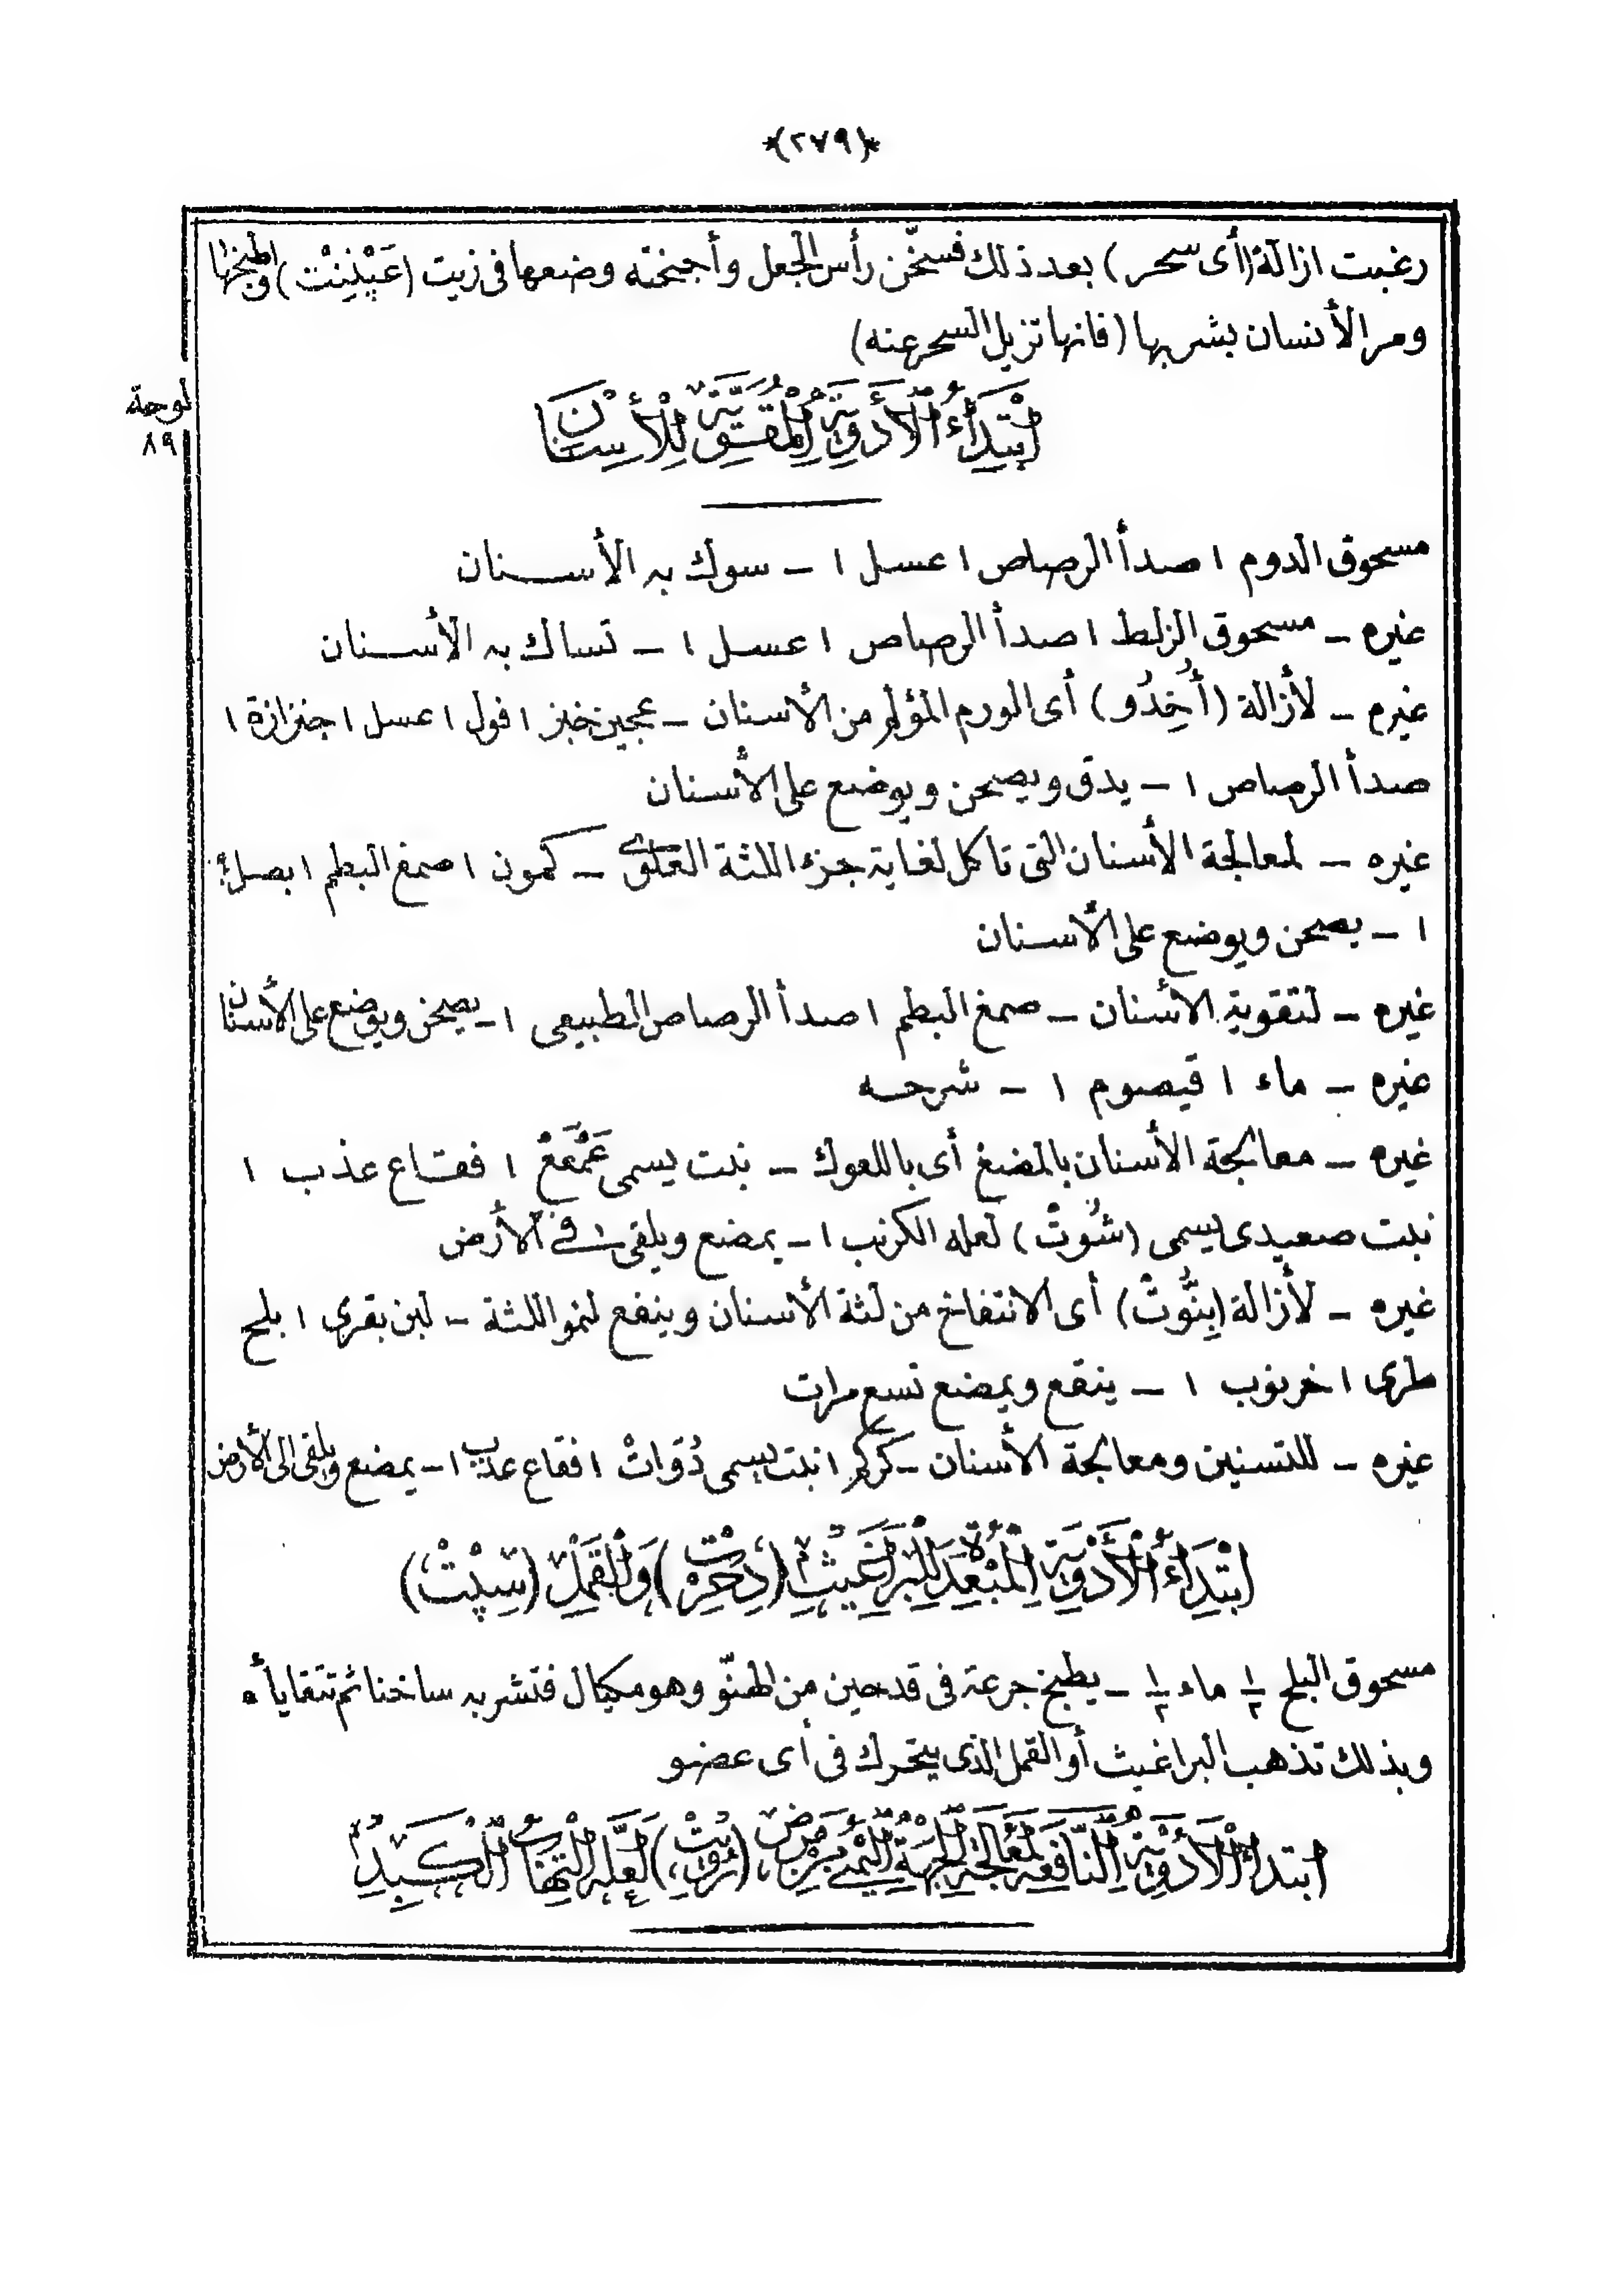 *(٢٧٩)*
رغبت ازالة (أى سحر) بعد ذلك فسخّن رأس الجعل وأجنحته وضعها فى زيت وأطبخها
ومر الأنسان بشربها (فانها تزيل السحر عنه)
لوحة
٨٩
ابْتِدَاءُ الْأَدْوِيَةِ الْمُقَوِّيَّةِ لِلْأَسْنَانِ
مسحوق الدوم ١ صدأ الرصاص ١ عسل ١ – سوك به الأسنان
غيره – مسحوق الزلط ١ صدأ الرصاص ١ عسل ١ – تساك به الأسنان
غيره – لأزالة (أُخِدُو) أى الورم المؤلم من الأسنان – عجين خبز ١ فول ١ عسل ١ جنزازة ١
صدأ الرصاص ١ – يدق ويصحن ويوضع على الأسنان
غيره – لمعالجة الأسنان التى تاكل لغاية جزء اللثة العلوى – كمون ١ صمغ البطم ١ بصل
١ – يصحن ويوضع على الأسنان
غيره – لتقوية الأسنان – صمغ البطم ١ صدأ الرصاص الطبيعى ١ – يصحن ويوضع على الأسنان
غيره – ماء ١ قيصوم ١ – شرحه
غيره – معالجة الأسنان بالمضغ أى باللعوك – نبت يسمى عَمْعَعْ ١ فقاع عذب ١
نبت صعيدى يسمى (شُوتْ) لعله الكرنب ١ – يمضغ ويلقى فى الأرض
غيره – لأزالة (بِنُّوتْ) أى الانتفاخ من لثة الأسنان وينفع لنمو اللثة – لبن بقرى ١ بلح
طرى ١ خرنوب ١ – ينقع ويمضغ تسع مرات
غيره – للتسنين ومعالجة الأسنان – كركر ١ نبت يسمى دُقَواتْ ١ فقاع عذب ١ – يمضغ ويلقى الى الأرض
ابْتِدَاءُ الْأَدْوِيَةِ الْمُبْعِدَةِ لِلْبَرَاغِيثِ (دِحَرِتْ) وَالْقَمْلِ (سِپْتْ)
مسحوق البلح ١/٢ ماء ١/٢ – يطبخ جرعة فى قدحين من الهنّو وهو مكيال فتشربه ساخنا ثم تتقايأه
وبذلك تذهب البراغيث أو القمل الذى يتحرك فى أى عضو
ابتداء الْأَدْوِيَةِ النَّافِعَةِ لِمُعَالَجَةِ الْجِهَةِ الْيُمْنَى مِنْ مَرَضِ لَعَلَّهُ الْتِهَابُ الْكَبِدِ